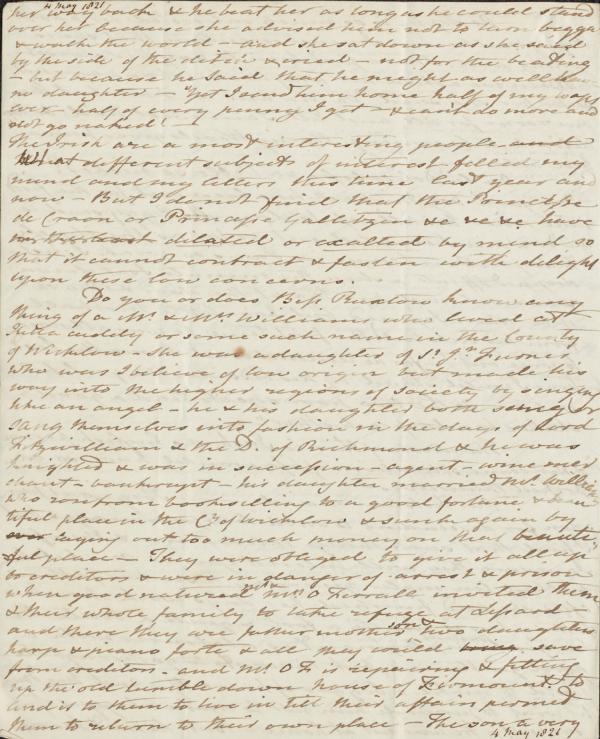 4 May 1821
her way back & he beat her as long as he could stand
over her because she advised him not to turn beggar
& walk the world – and she sat down as she said
by the side of the ditch & cried – not for the beating
– but because he said that he might as well have
no daughter – "yet I send him home half of my wages
ever – half of every penny I get – & cant do more and
not go naked! –
The Irish are a most interesting people – and
what different subjects of interest filled my
mind and my letters this time last year and
now – But I do not find that the Princesse
de Craon or Princesse Gallitzin &c &c &c have
in the least dilated or exalted my mind so
that it cannot contract & fasten with delight
upon these low concerns.
Do you or does Bess Ruxton know any
thing of a Mr. & Mrs Williams who lived at
or some such name in the County
of Wicklow – She was a daughter of Sr. Jn Turner
who was I believe of low origin but made his
way into the higher regions of society by singing
like an angel – he & his daughter both sung or
sang themselves into fashion in the days of Lord
Fitzwilliam & the D. of Richmond & he was
knighted & was in succession – agent – wine mer
chant – bankrupt – his daughter married Mr Williams
who rose from bookselling to a good fortune & beau
tiful place in the Cy of Wicklow & sunk again by
laying out too much money on that beauti
ful place – They were obliged to give it all up
to creditors & were in danger of arrest & prison
when good natured Mr & Mrs O Ferrall invited them
& their whole family to take refuge at Lissard –
and there they are father mother son & two daughters
harp & piano forte & all they could bring save
from creditors – and Mr O F is repairing & fitting
up the old tumble down house of Firmount to
lend it to them to live in till their affairs permit
them to return to their own place – The son a very
4 May 1821